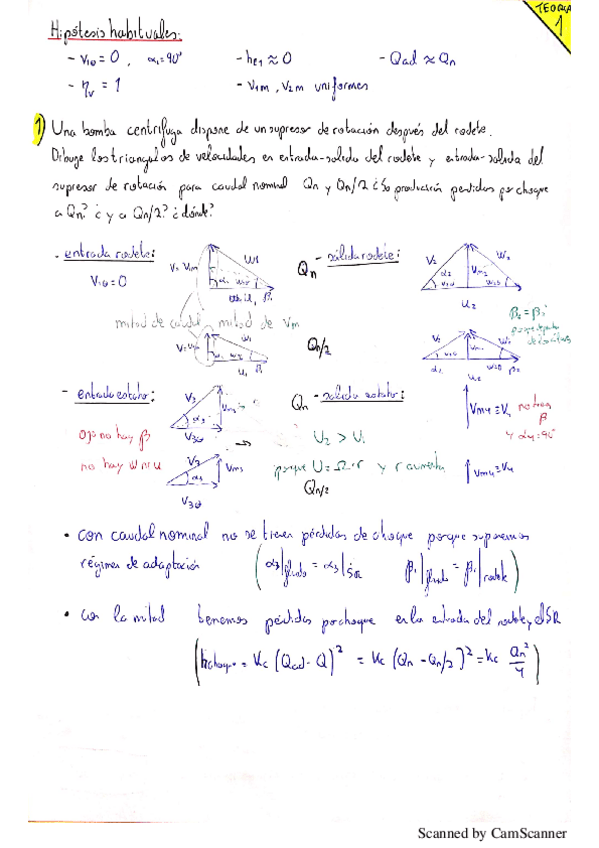 TEORÍA
1
Hipótesis habituales:
- V1θ = 0, α1 = 90° - hr1 ≈ 0 - Qad ≈ Qn
- ηv = 1 - V1m, V2m uniformes
1) Una bomba centrífuga dispone de un supresor de rotación después del rodete.
Dibuje los triangulos de velocidades en entrada-salida del rodete y entrada-salida del
supresor de rotación para caudal nominal Qn y Qn/2 ¿Se producirán perdidas por choque
a Qn? ¿y a Qn/2? ¿dónde?
- entrada rodete: Qn - salida rodete:
V1θ = 0
V2 W2 V2m α2 V2θ U2
β2 = β2'
mitad de caudal mitad de Vm
Qn/2
- entrada estator: Qn - salida estator:
V3 V3m α3 V3θ
Vm4 ≡ V4 no hay β y α4 = 90°
Ojo no hay β
no hay W ni U
U2 > U1
porque U = Ω·r y r aumenta
Qn/2
V3 V3m α3 V3θ
Vm4 ≡ V4
• con caudal nominal no se tienen pérdidas de choque porque suponemos
régimen de adaptación (α3|fluido = α3|SR β1|fluido = β1|rodete)
• con la mitad tenemos pérdidas por choque en la entrada del rodete y el SR
(hchoque = Kc (Qad - Q)² = Kc (Qn - Qn/2)² = Kc Qn²/4)
Scanned by CamScanner